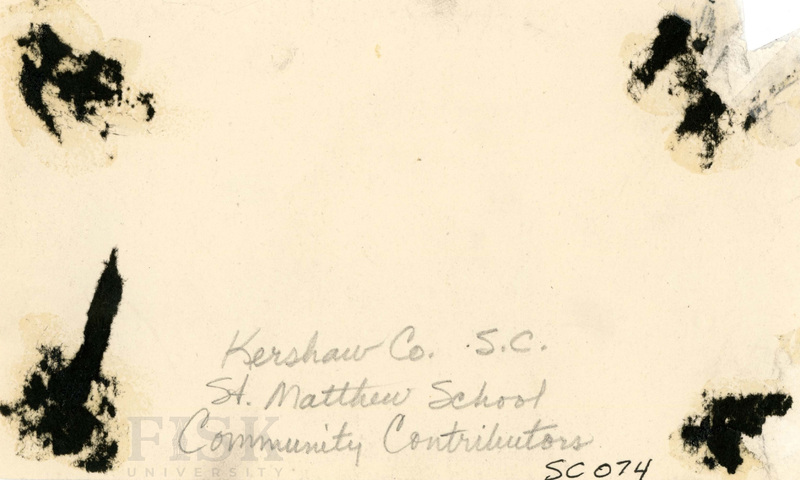 Kershaw Co. S.C.
St. Matthew School
Community Contributors
SC074
FISK
UNIVERSITY